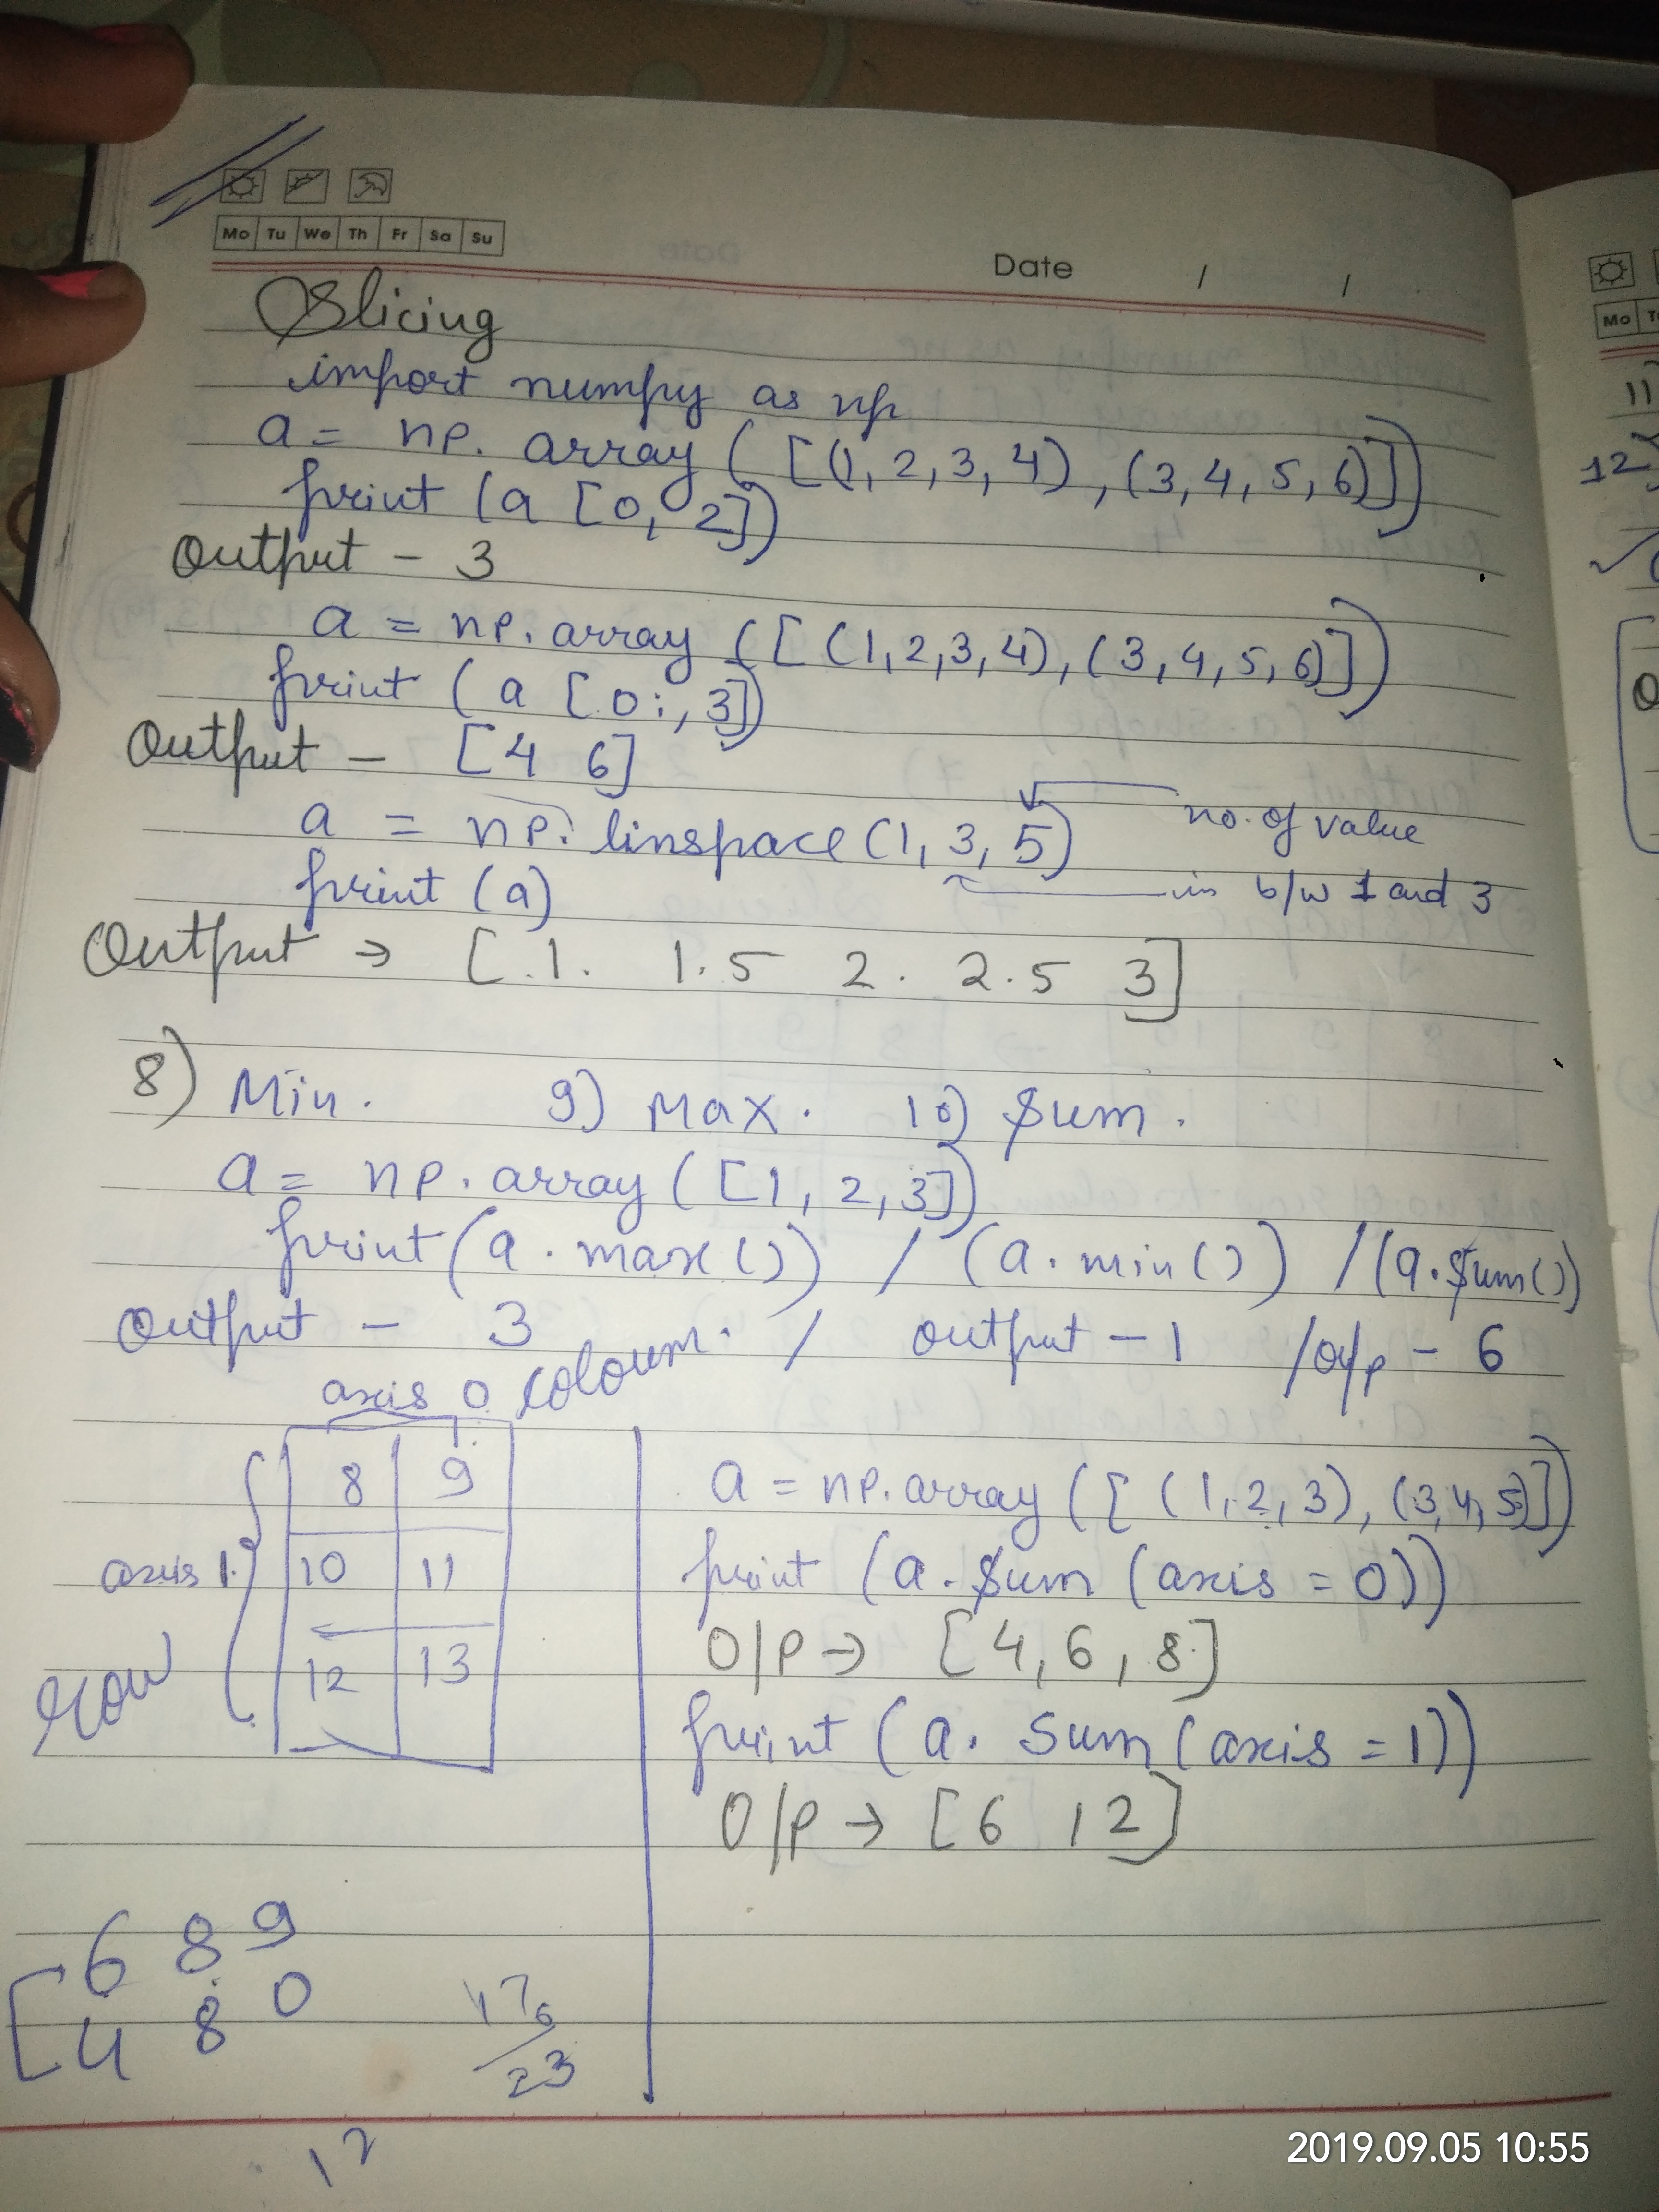 Mo Tu We Th Fr Sa Su
Date / /
Slicing
import numpy as np
a = np. array ( [(1, 2, 3, 4) , (3, 4, 5, 6)])
print (a [0, 2])
Output - 3
a = np. array ([(1,2,3,4), (3, 4, 5, 6)])
print ( a [0:, 3])
Output - [4 6]
a = np. linspace (1, 3, 5) no. of value
print (a) in b/w 1 and 3
Output → [ .1. 1.5 2. 2.5 3]
8) Min. 9) Max. 10) Sum.
a = np. array ( [1, 2, 3])
print (a . max ()) / (a. min ()) / (a. sum ())
Output - 3 / output - 1 / o/p - 6
axis 0 coloum.
8 9
axis 1. 10 11
row 12 13
a = np. array ([ (1, 2, 3), (3, 4, 5)])
print (a. Sum (axis = 0))
O/P → [4, 6, 8]
print (a. Sum (axis = 1))
O/P → [6 12]
6 8 9
[4 8 0
17 6
23
12
Mo
11
12
2019.09.05 10:55